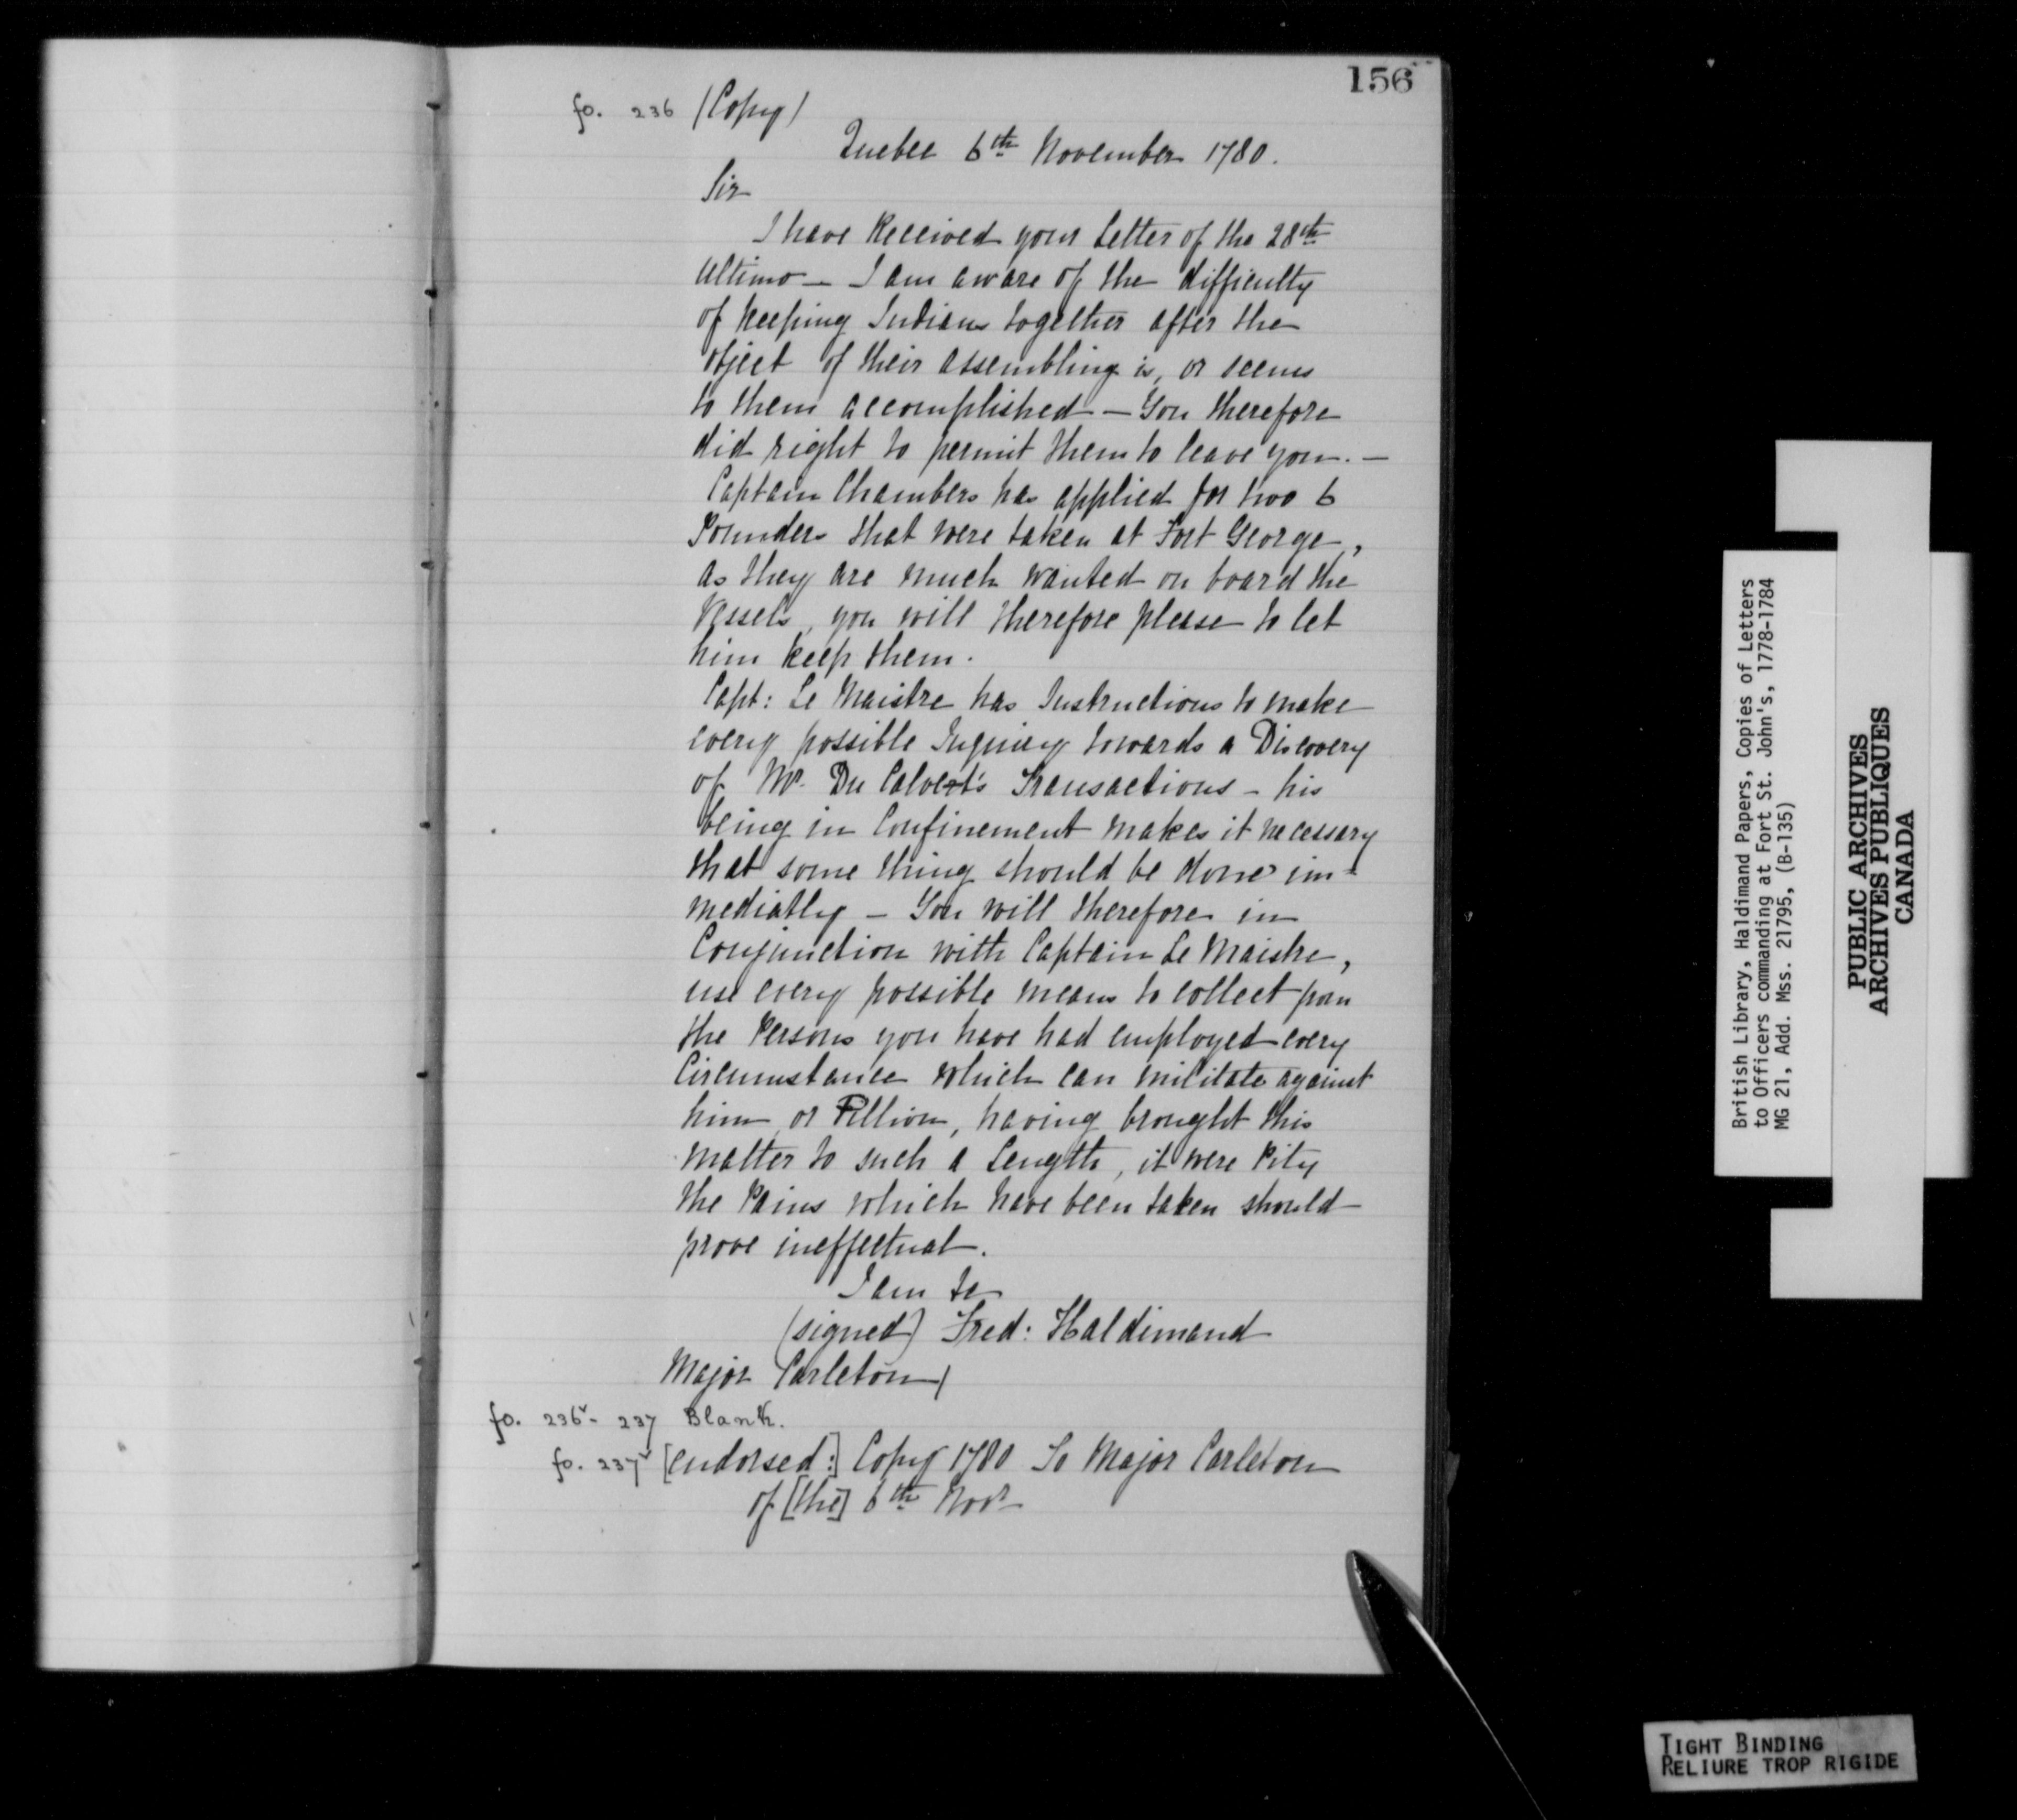 156
fo. 236 (Copy)
Quebec 6th November 1780.
Sir
I have Received your Letter of the 28th
Ultimo — I am aware of the difficulty
of keeping Indians together after the
object of their assembling is, or seems
to them accomplished — You therefore
did right to permit them to leave you. —
Captain Chambers has applied for two 6
Pounders that were taken at Fort George,
as they are much wanted on board the
Vessels, you will therefore please to let
him keep them.
Capt: Le Maistre has Instructions to make
every possible Inquiry towards a Discovery
of Mr. Du Calvert's Transactions — his
being in Confinement makes it necessary
that some thing should be done im-
mediatly — You will therefore in
Conjunction with Captain Le Maistre,
use every possible means to collect from
the Persons you have had employed every
Circumstance which can militate against
him or Pillion, having brought this
matter to such a Length, it were Pity
the Pains which have been taken should
prove ineffectual.
I am &c
(signed) Fred: Haldimand
Major Carleton)
fo. 236v - 237 Blank.
fo. 237v [endorsed:] Copy 1780 To Major Carleton
of [the] 6th Novr
British Library, Haldimand Papers, Copies of Letters
to Officers commanding at Fort St. John's, 1778-1784
MG 21, Add. Mss. 21795, (B-135)
PUBLIC ARCHIVES
ARCHIVES PUBLIQUES
CANADA
TIGHT BINDING
RELIURE TROP RIGIDE